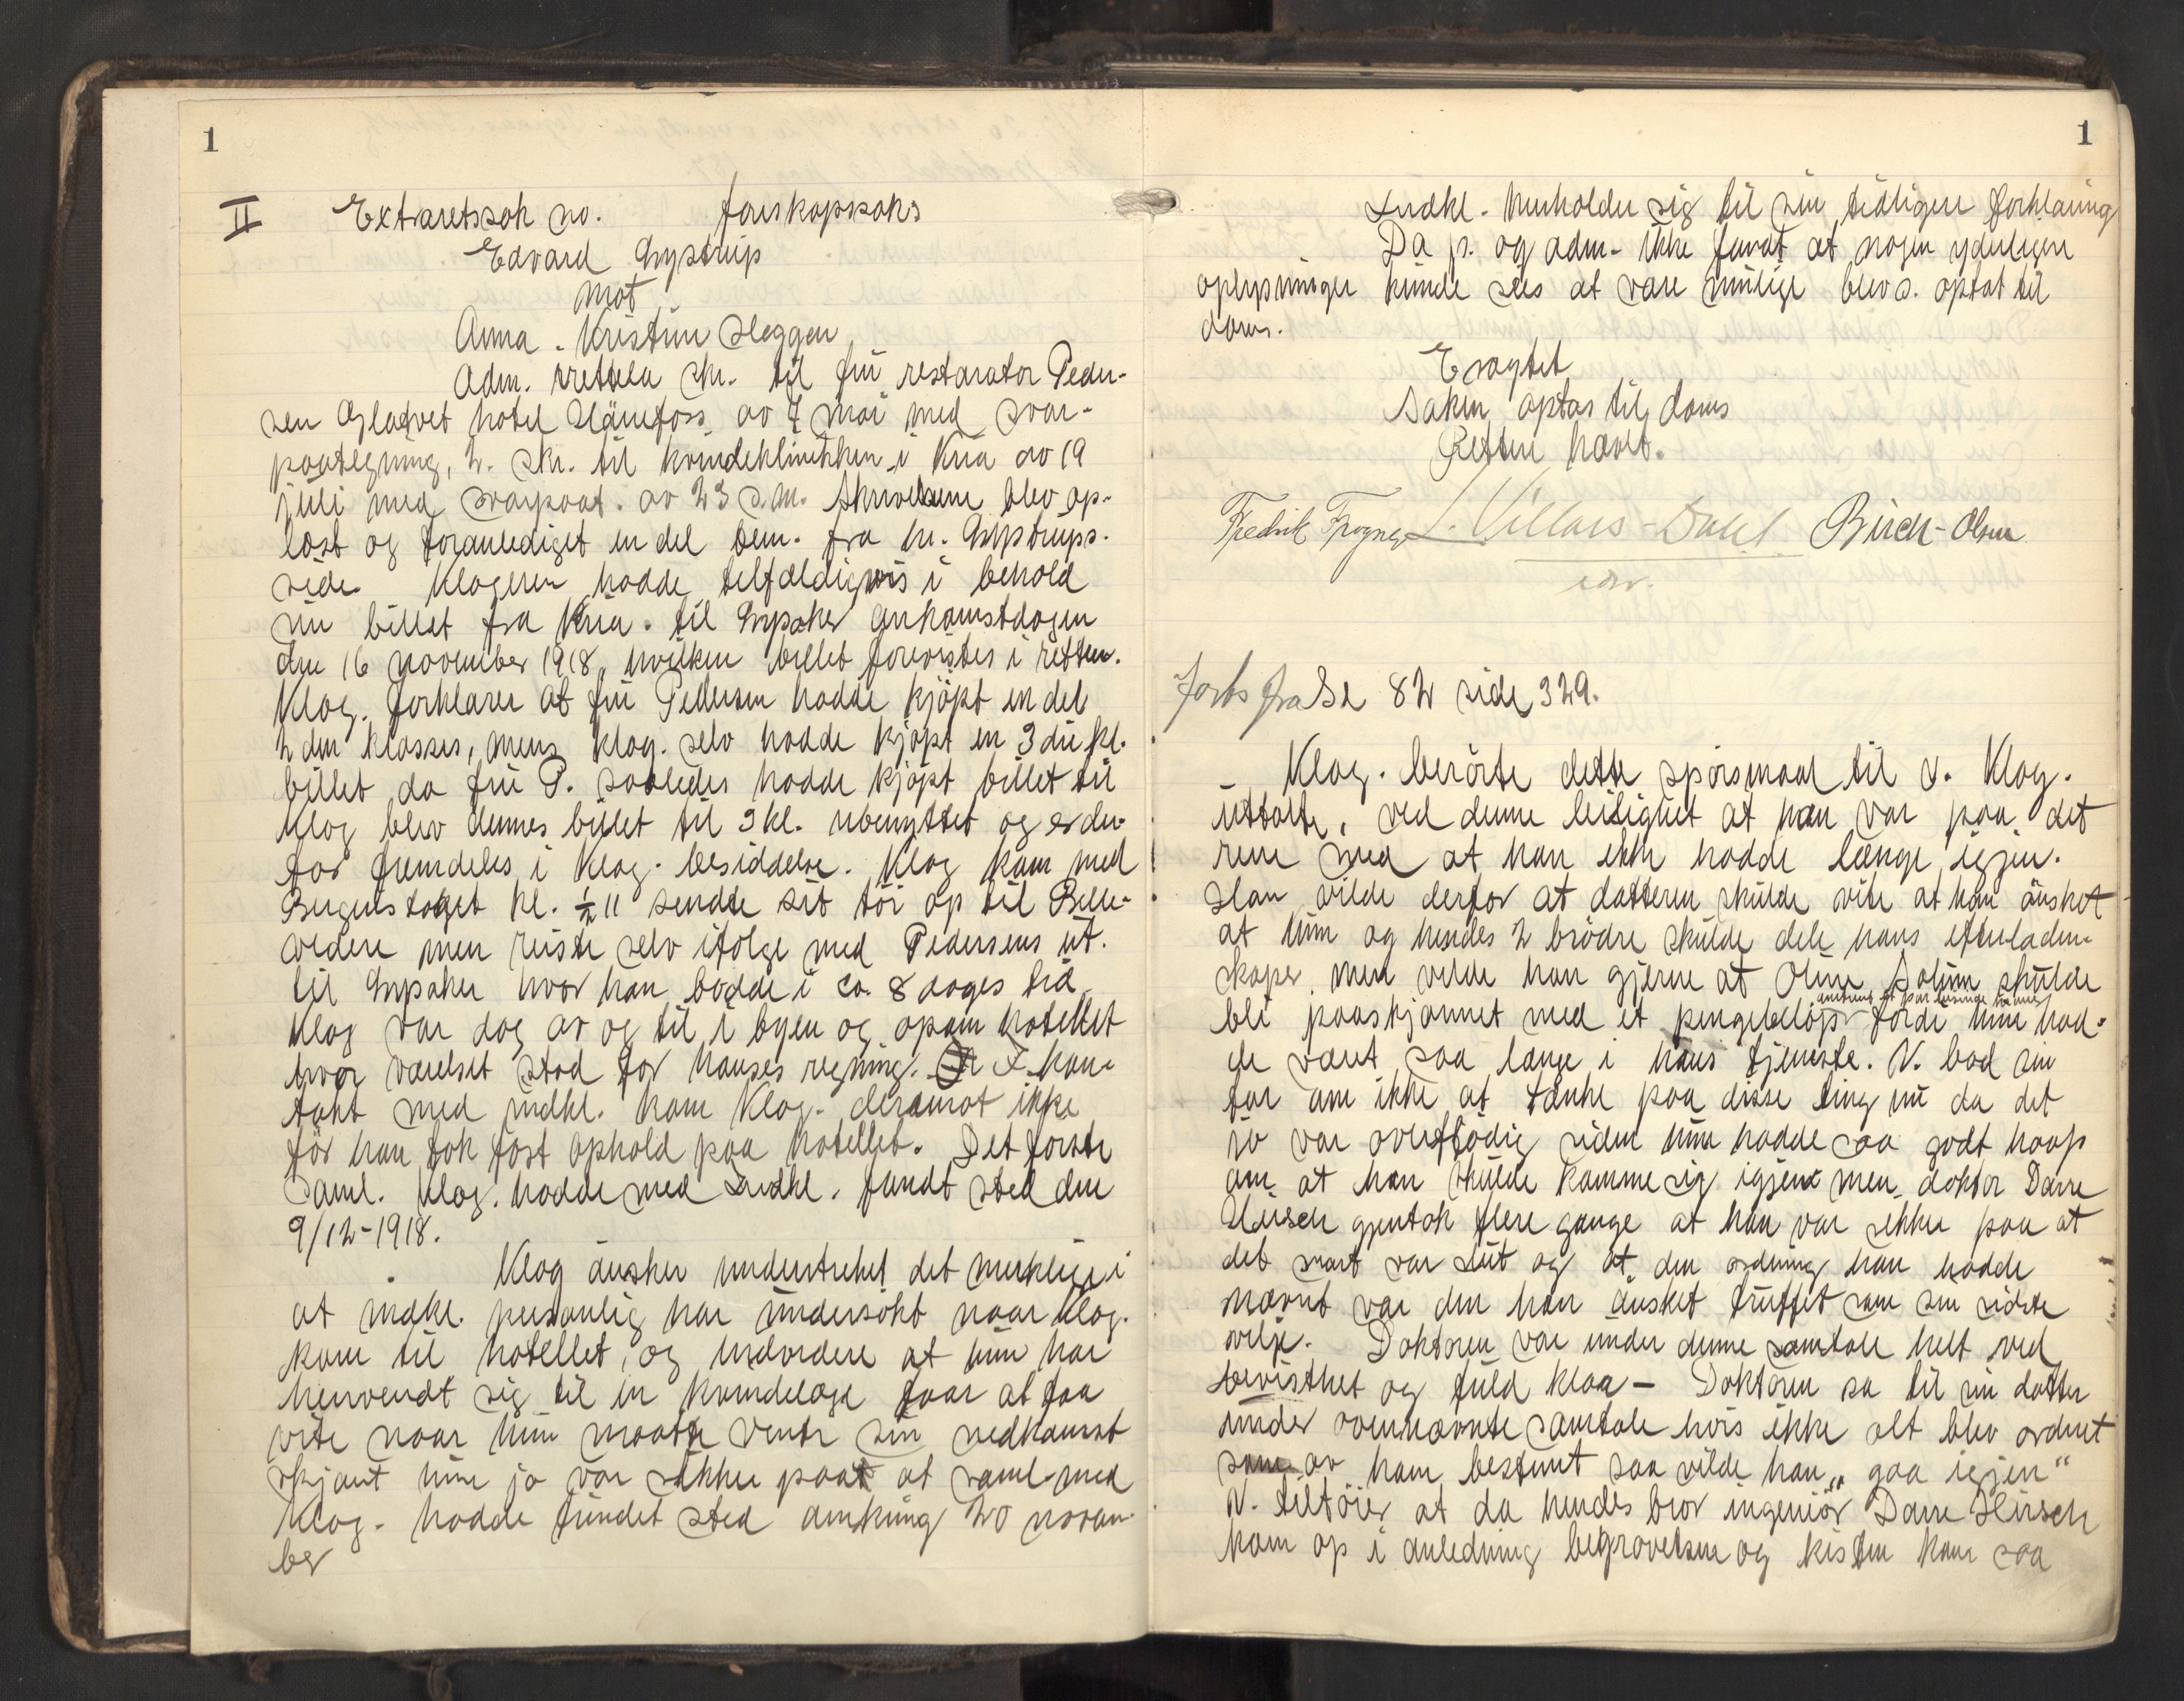 1
II Extraretssak no. farskapssaks
Edvard Lystrup
mot
Anna Kristine Heggen
Adm. rettela skr. til fru restaratør Peder-
sen Gladvet hotel Hønefoss av 7 mai med svar-
paategning, 2. skr. til kvindeklinikken i Kria av 19
juli med svarpaat. av 23 s.m. Skrivelsene blev op-
læst og foranlediget en del bem. fra hr. Lystrups.
side. Klageren hadde tilfældigvis i behold
sin billet fra Kria. til ankomstdagen
den 16 november 1918, hvilken billet forevistes i retten.
Klag. forklarer at fru Pedersen hadde kjöpt en del
2den klasses, mens klag. selv hadde kjöpt en 3die kl.
billet da fru P. saaledes hadde kjöpt billet til
klag blev dennes billet til 3 kl. ubenyttet og er der-
for fremdeles i Klag. besiddelse. Klag kom med
Bergenstoget kl. ½ 11 sendte sit töi op til Belle-
vedere men reiste selv ifölge med Pedersens ut.
til hvor han bodde i ca. 8 dages tid.
Klag var dog av og til i byen og opom hotellet
hvor værelset stod for hanses regning. I kon-
takt med indkl. kom Klag. derimot ikke
för han tok fast ophold paa hotellet. Det förste
saml. klag. hadde med Indkl. fandt sted den
9/12-1918.
Klag önsker understreket det merkelige i
at indkl. personlig har undersökt naar Klag.
kom til hotellet, og endvidere at hun har
henvendt sig til en kvindelæge for at faa
vite naar hun maatte vente sin nedkomst
skjönt hun jo var sikker paa at saml. med
Klag. hadde fundet sted omkring 20 novem-
ber
1
Indkl. henholder sig til sin tidligere forklaring
Da p. og adm. ikke fandt at nogen yderligere
oplysninger kunde sees at være mulige blev s. optat til
doms.
Eragtet
Saken optas til doms
Retten hævet.
Fredrik Frogner L. Villars-Dahl Birch-Olsen
edv.
Forts fra Se 82 side 329.
Klag. berörte dette spörsmaal til v. Klag.
uttalte, ved denne leilighet at han var paa det
rene med at han ikke hadde længe igjen.
Han vilde derfor at datteren skulde vite at han önsket
at hun og hendes 2 brödre skulde dele hans efterladen-
skaper, men vilde han gjerne at Oline Solum skulde
bli paaskjönnet med et pengebelöp fordi hun had-
de været saa længe i hans tjeneste. V. bad sin
far om ikke at tænke paa disse ting nu da det
jo var overflödig siden hun hadde saa godt haap
om at han skulde komme sig igjen men doktor Darre
Hirsch gjentok flere gange at han var sikker paa at
det snart var slut og at den ordning han hadde
nævnt var den han önsket truffet som sin sidste
vilje. Doktoren var under denne samtale helt ved
bevissthet og fuld klar - Doktoren sa til sin datter
under ovennævnte samtale hvis ikke alt blev ordnet
som av ham bestemt saa vilde han „gaa igjen“
V. tilföier at da hendes bror ingeniör Darre Hirsch
kom op i anledning begravelsen og kisten kom saa